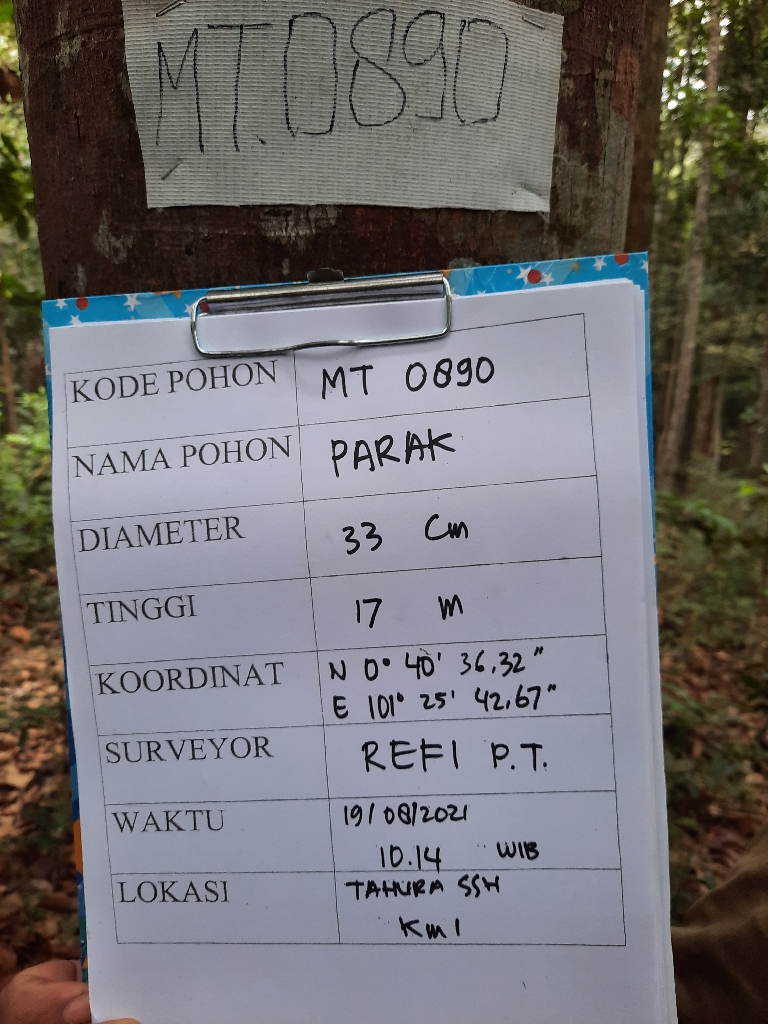 MT.0890
KODE POHON MT 0890
NAMA POHON PARAK
DIAMETER 33 Cm
TINGGI 17 m
KOORDINAT N 0° 40' 36,32"
E 101° 25' 42,67"
SURVEYOR REFI P.T.
WAKTU 19/08/2021
10.14 WIB
LOKASI TAHURA SSH
Km 1